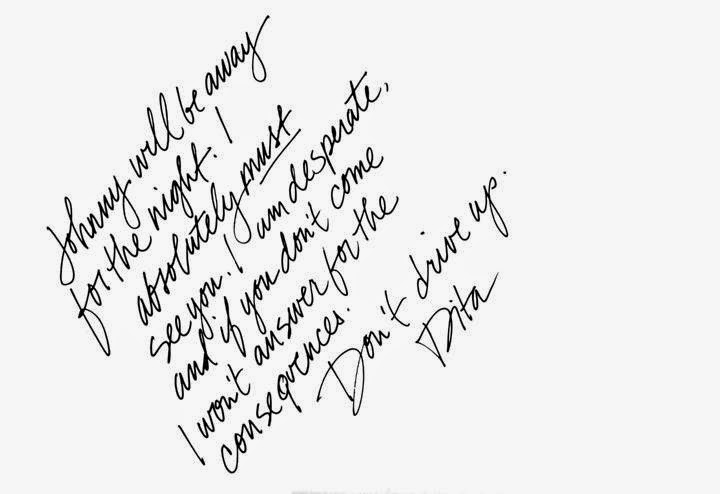 Johnny will be away
for the night. I
absolutely must
see you. I am desperate,
and if you don't come
I won't answer for the
consequences. Don't drive up.
Dita